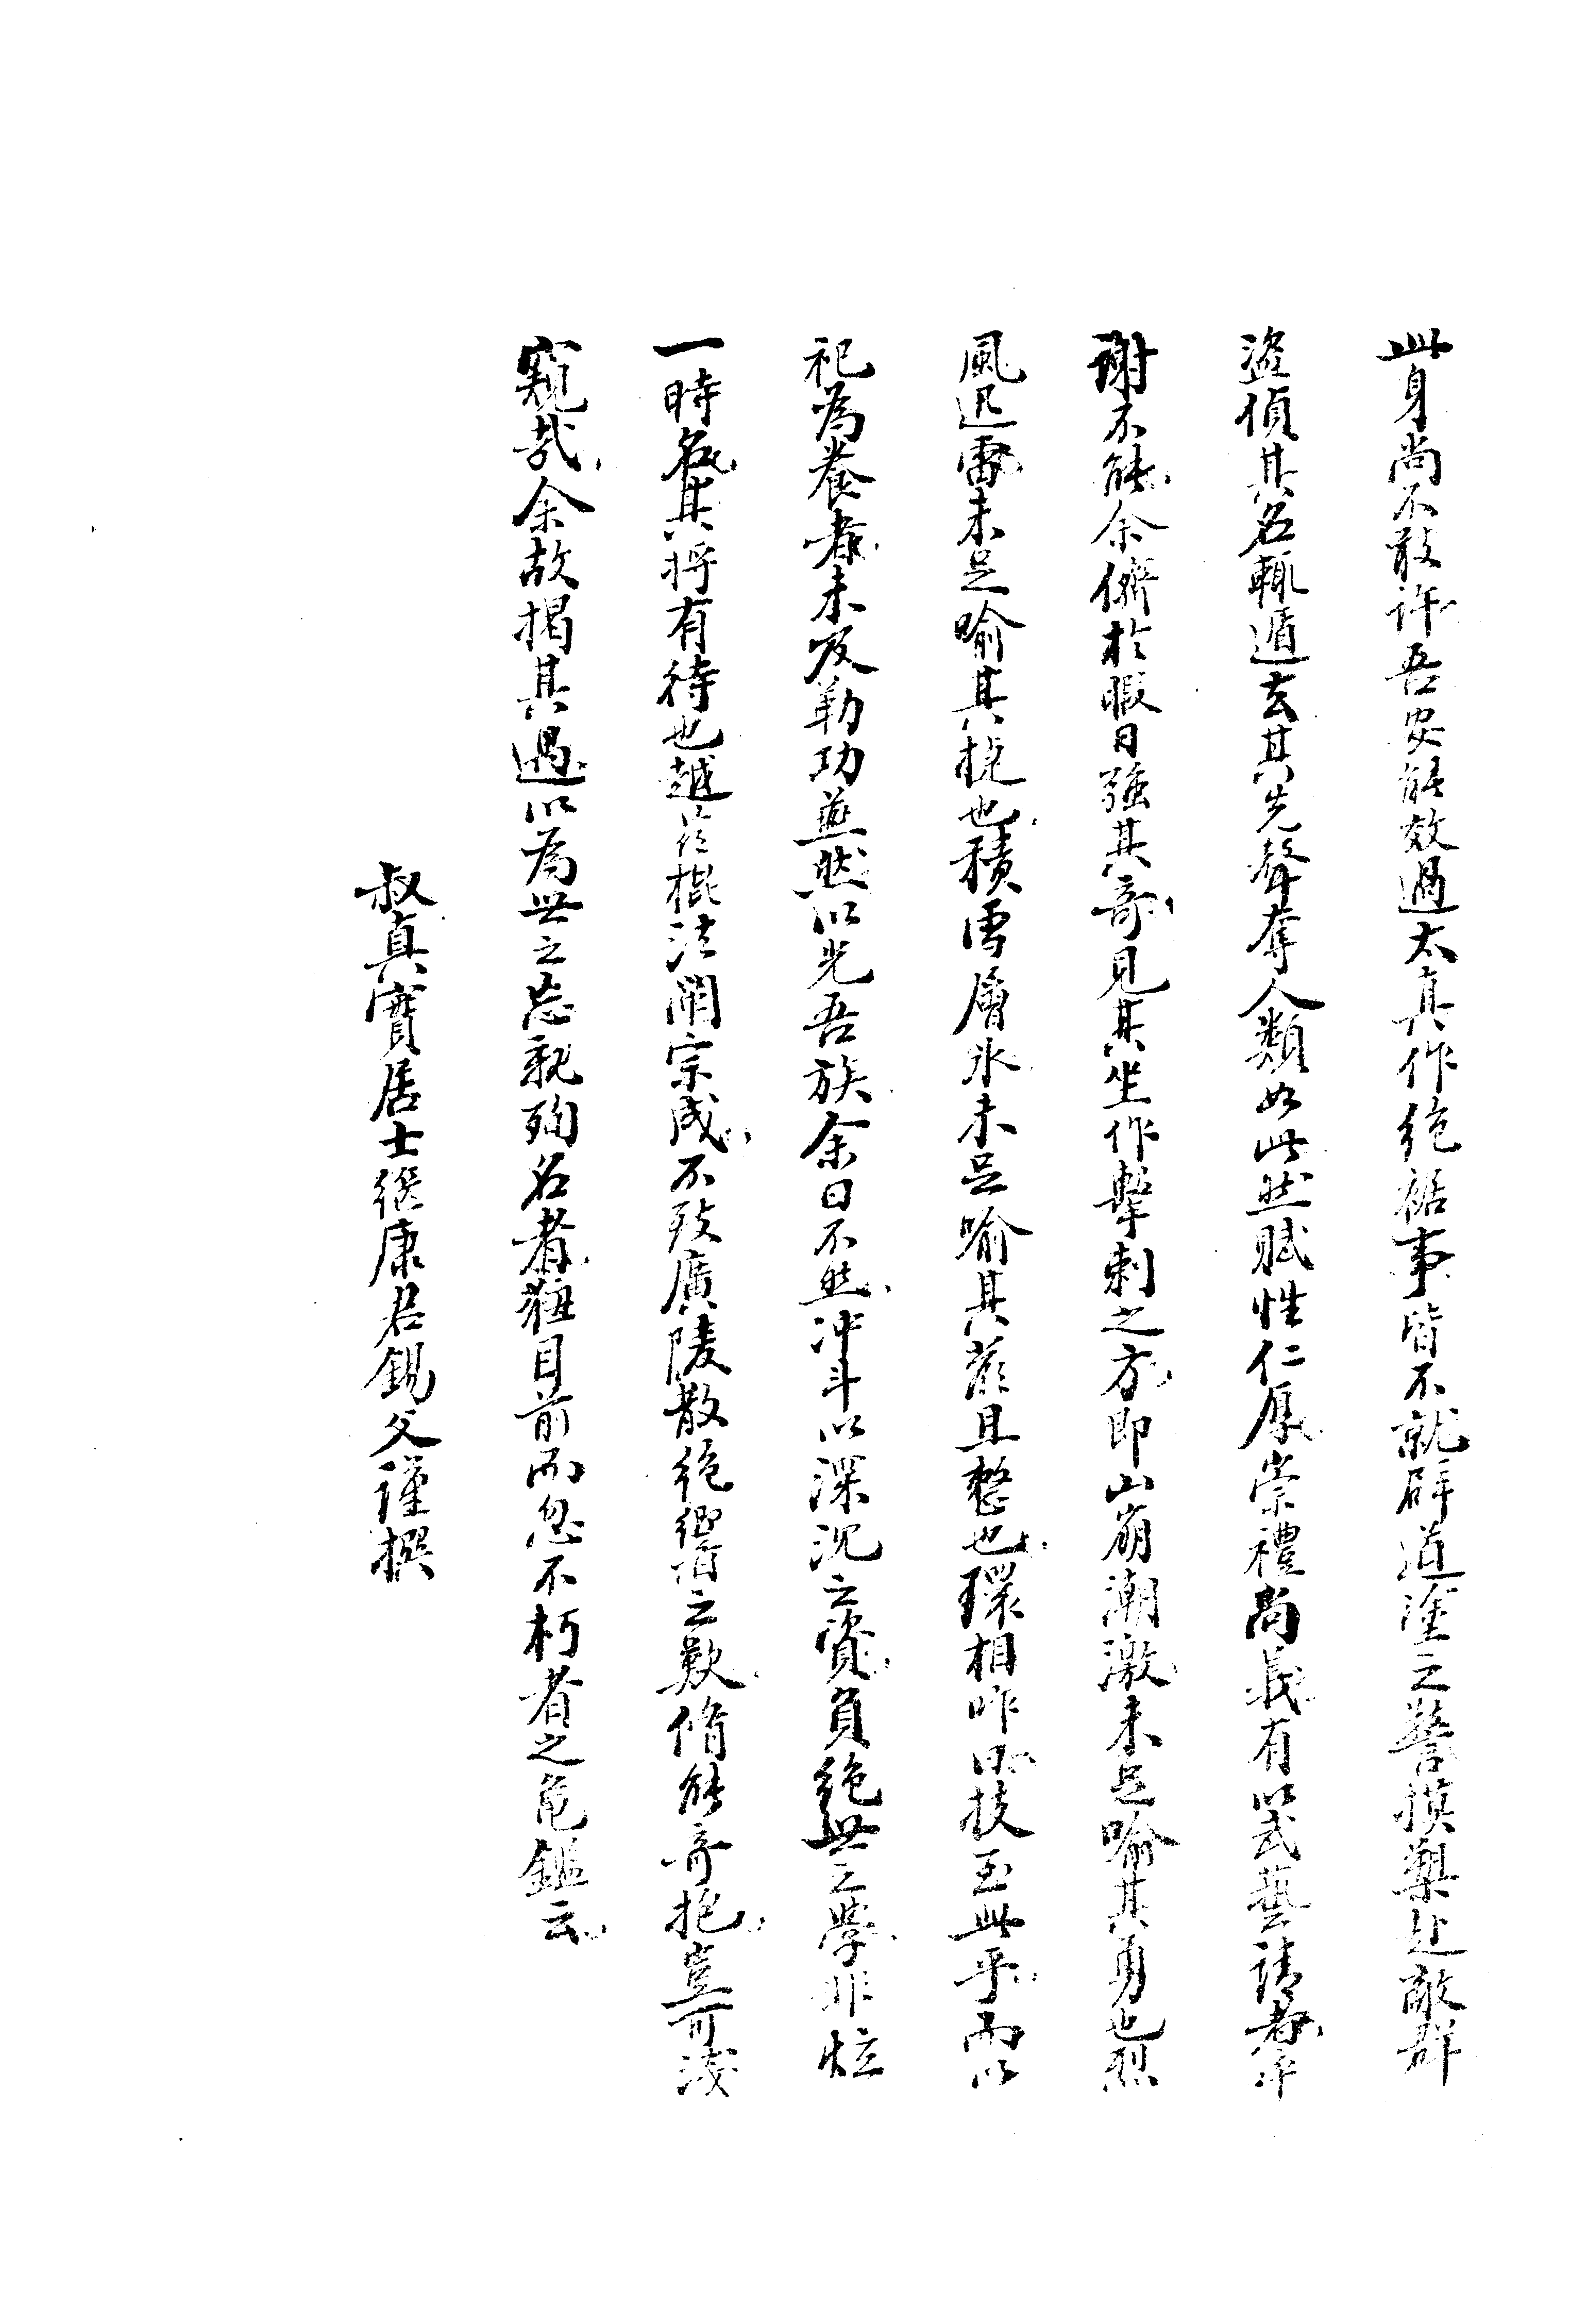 此身尚不敢許吾安能效過太真作絕裾事皆不就辟道塗之警摸槊赴敵群
盜偵其名輒遁去其先聲奪人類如此然賦性仁厚崇禮尚義有以武藝請者率
謝不能余儕於暇日強其奇見其坐作擊刺之方即山崩潮激未足喻其勇也烈
風迅雷未足喻其捷也積雪層氷未足喻其嚴且整也環相咋曰技至此乎而以
祀為養者未及勒功燕然以光吾族余曰不然冲斗以深沉之資負絕世之學非炫
一時名其將有待也越茲棍法闡宗成不致廣陵散絕響之歎脩能奇抱豈可淺
窺哉余故揭其過以為世之忘親殉名者狃目前而忽不朽者之龜鑑云
叔真實居士繼康君錫父謹撰